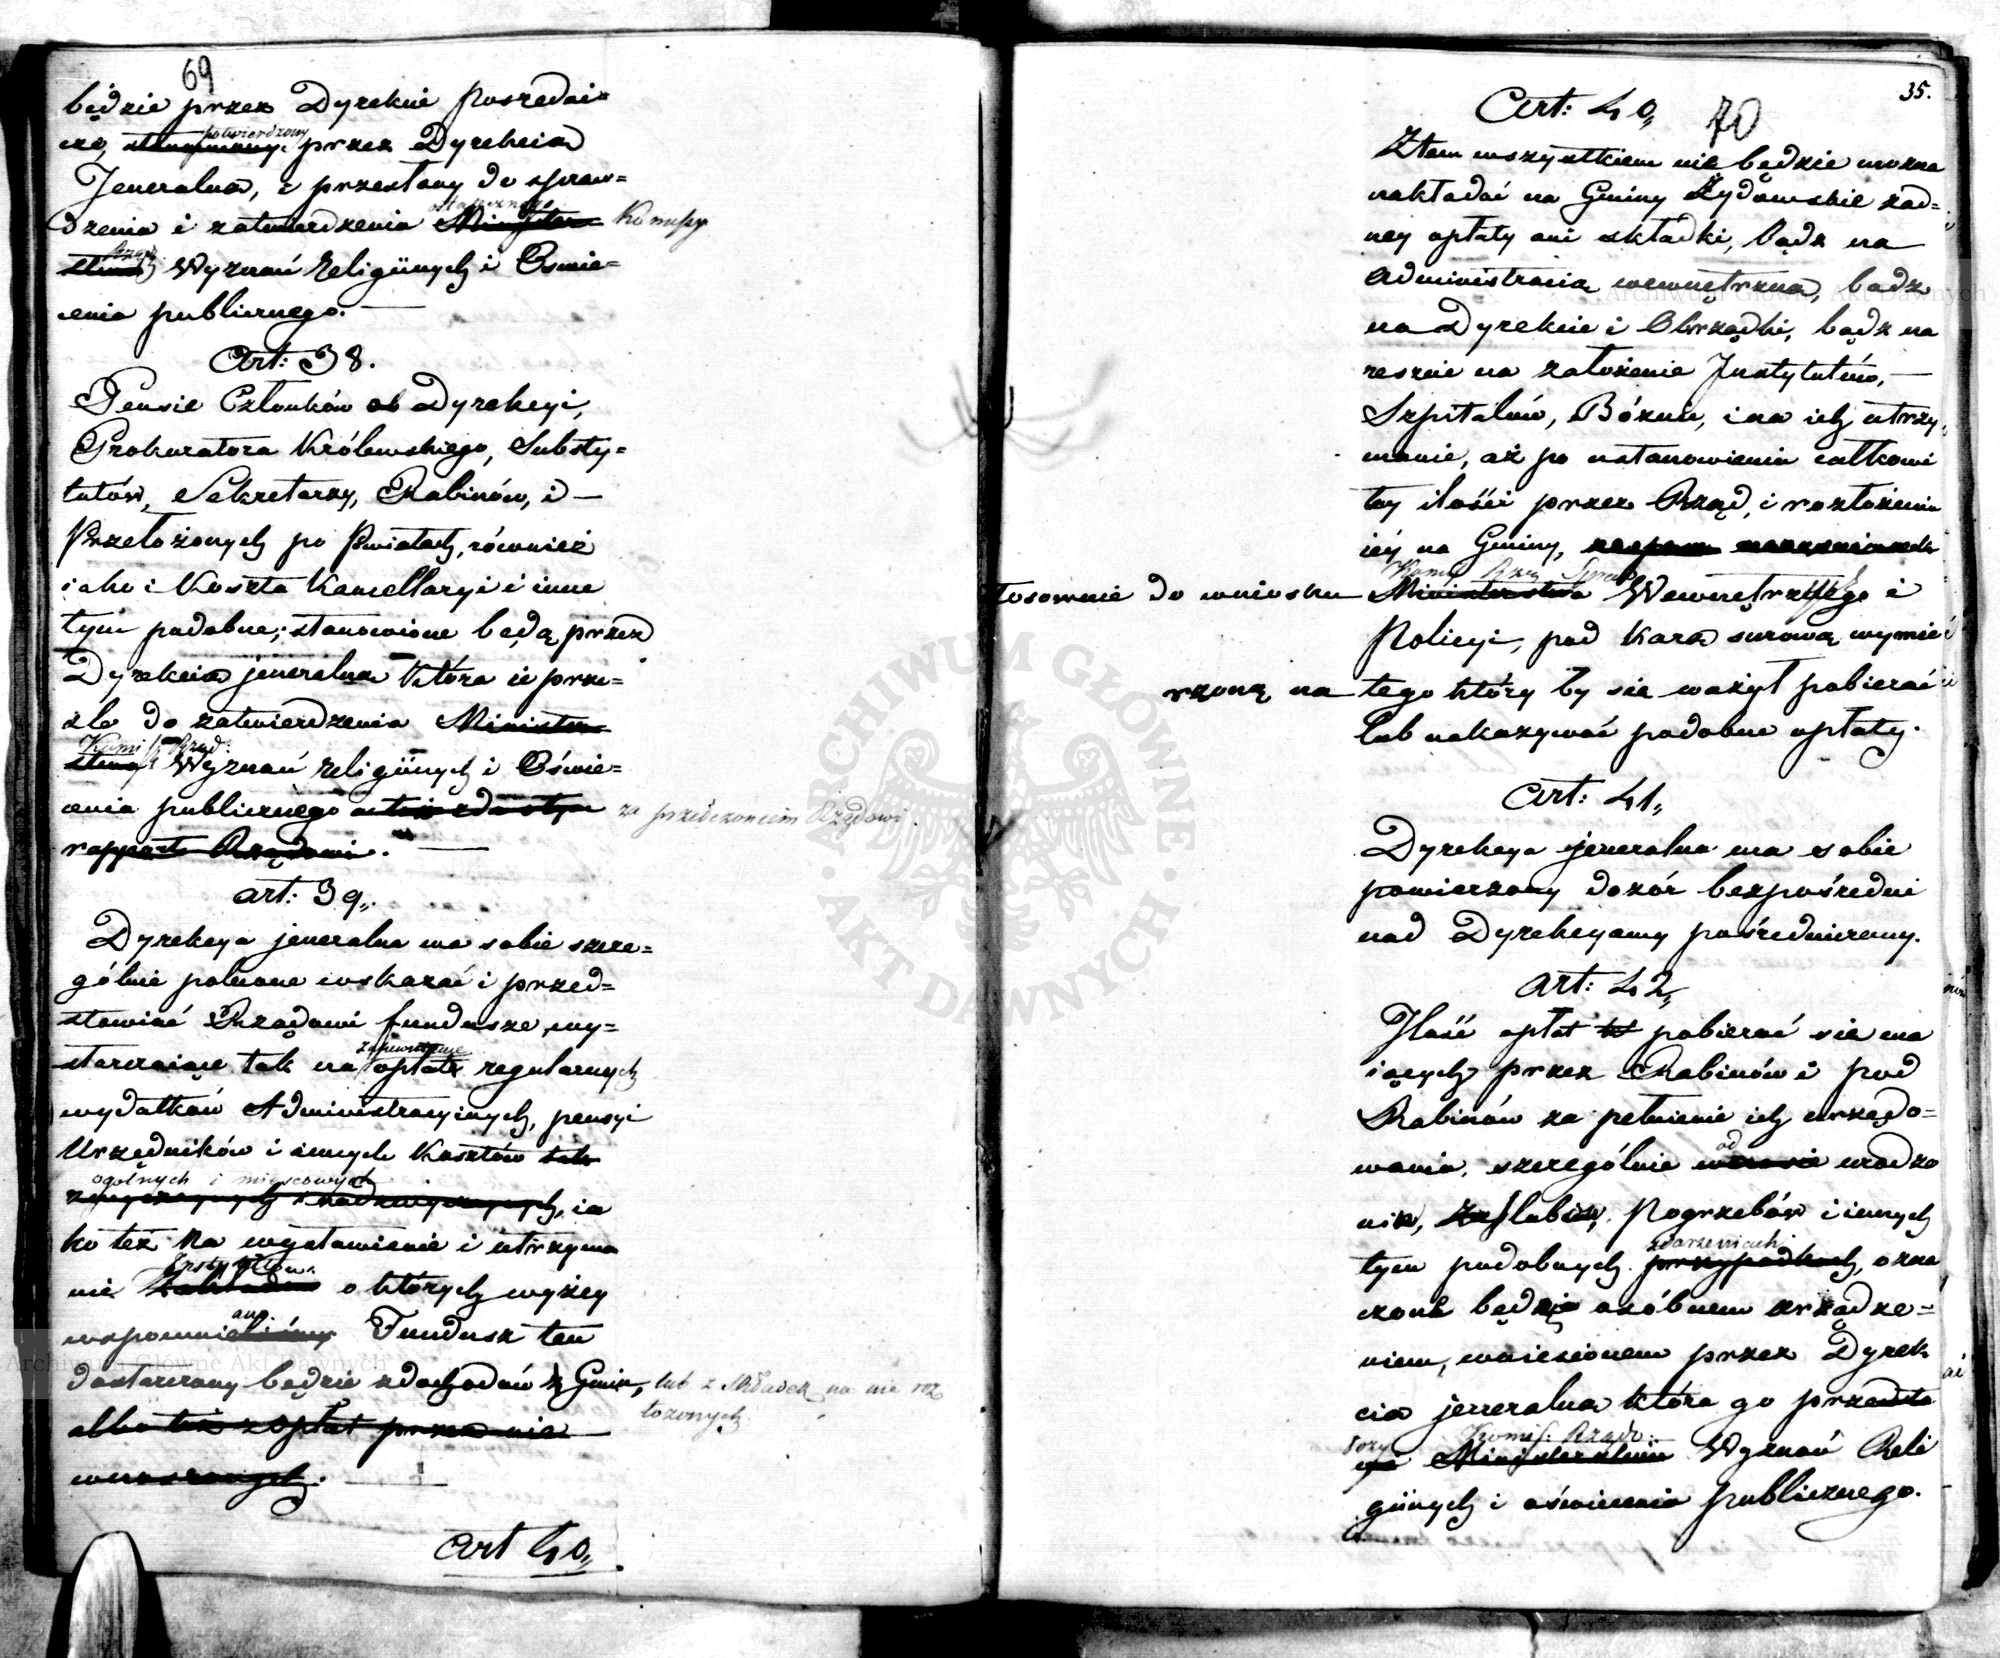 69
będzie przez Dyrekcie Posredni=
czę, potwierdzony przez Dyrekcią
Jeneralną, i przesłany do spraw=
dzenia i zatwierdzenia ostatecznego Minister= Komissyi
stwa Rząd. Wyznań Religijnych i Oswie=
cenia publicznego. —
Art: 38.
Pensie Członków Dyrekcyi,
Prokuratora Królewskiego, Substy=
tutów, Sekretarzy, Rabinów, i —
Przełożonych po Powiatach, również
iako i Koszta Kancellaryi i inne
tym podobne; stanowione będą, przez
Dyrekcią jeneralną która ie prze=
śle do zatwierdzenia Minister=
stwa Komiss: Rząd: Wyznań religijnych i Oświe=
cenia publicznego a też zda o tym za przełożeniem Rządowi.
rapport Rządowi. —
art: 39.,
Dyrekcya jeneralna ma sobie szcze=
gólnie polecone wskazać i przed=
stawiać Rządowi fundusze, wy=
starczaiące tak na zapewnienie opłatę regularnych
wydatków Administracyinych, pensyi
Urzędników i innych Kosztów tak
ogólnych i mieyscowych
zwyczaynych i nadzwyczaynych, ia
ko też na wystawienie i utrzyma
nie Instytutów Zakładów o których wyżey
wspomnieliśmy ano. Fundusz ten
dostarczony będzie z dochodów z Gmin, lub z składek na nie roz
łożonych
albo też z opłat przez nie
wnoszonych. —
Art 40.,
35.
Art: 40., 70
Z tem wszystkiem nie będzie można
nakładać na Gminy Żydowskie żad=
ney opłaty ani składki, bądź na
Administracią wewnętrzną, bądz
na Dyrekcie i Obrządki, bądź na
reszcie na założenie Instytutów, —
Szpitalów, Bóżnic, i na ich utrzy
manie, aż po ustanowieniu całkowi
tey ilości przez Rząd, i rozłożeniu
iéy na Gminy,
stosownie do wniosku Komis Rzą Spraw Ministerstwa Wewnętrznego i
Policyi, pod karą surową wymie
rzoną na tego który by sie ważył pobierać
lub nakazywać podobne opłaty.
Art: 41.,
Dyrekcya jeneralna ma sobie
powierzony dozór bezpośredni
nad Dyrekcyamy pośredniczemy.
art: 42.,
Ilość opłat pobierać sie ma
iących przez Rabinów i pod
Rabinów za pełnienie ich urzędo=
wania, szczególnie od urodze
nin, ślubów, Pogrzebów i innych
tym podobnych zdarzeniach przypadkach, ozna
czone będzie osóbnem urządze=
niem, wniesionem przez Dyrek
cią jeneralną która go przedło
ży Komis: Rządo: Ministerstwu Wyznań Reli
gijnych i oświecenia publicznego.
Archiwum Główne Akt Dawnych
Archiwum Główne Akt Dawnych
ARCHIWUM GŁÓWNE · AKT DAWNYCH ·